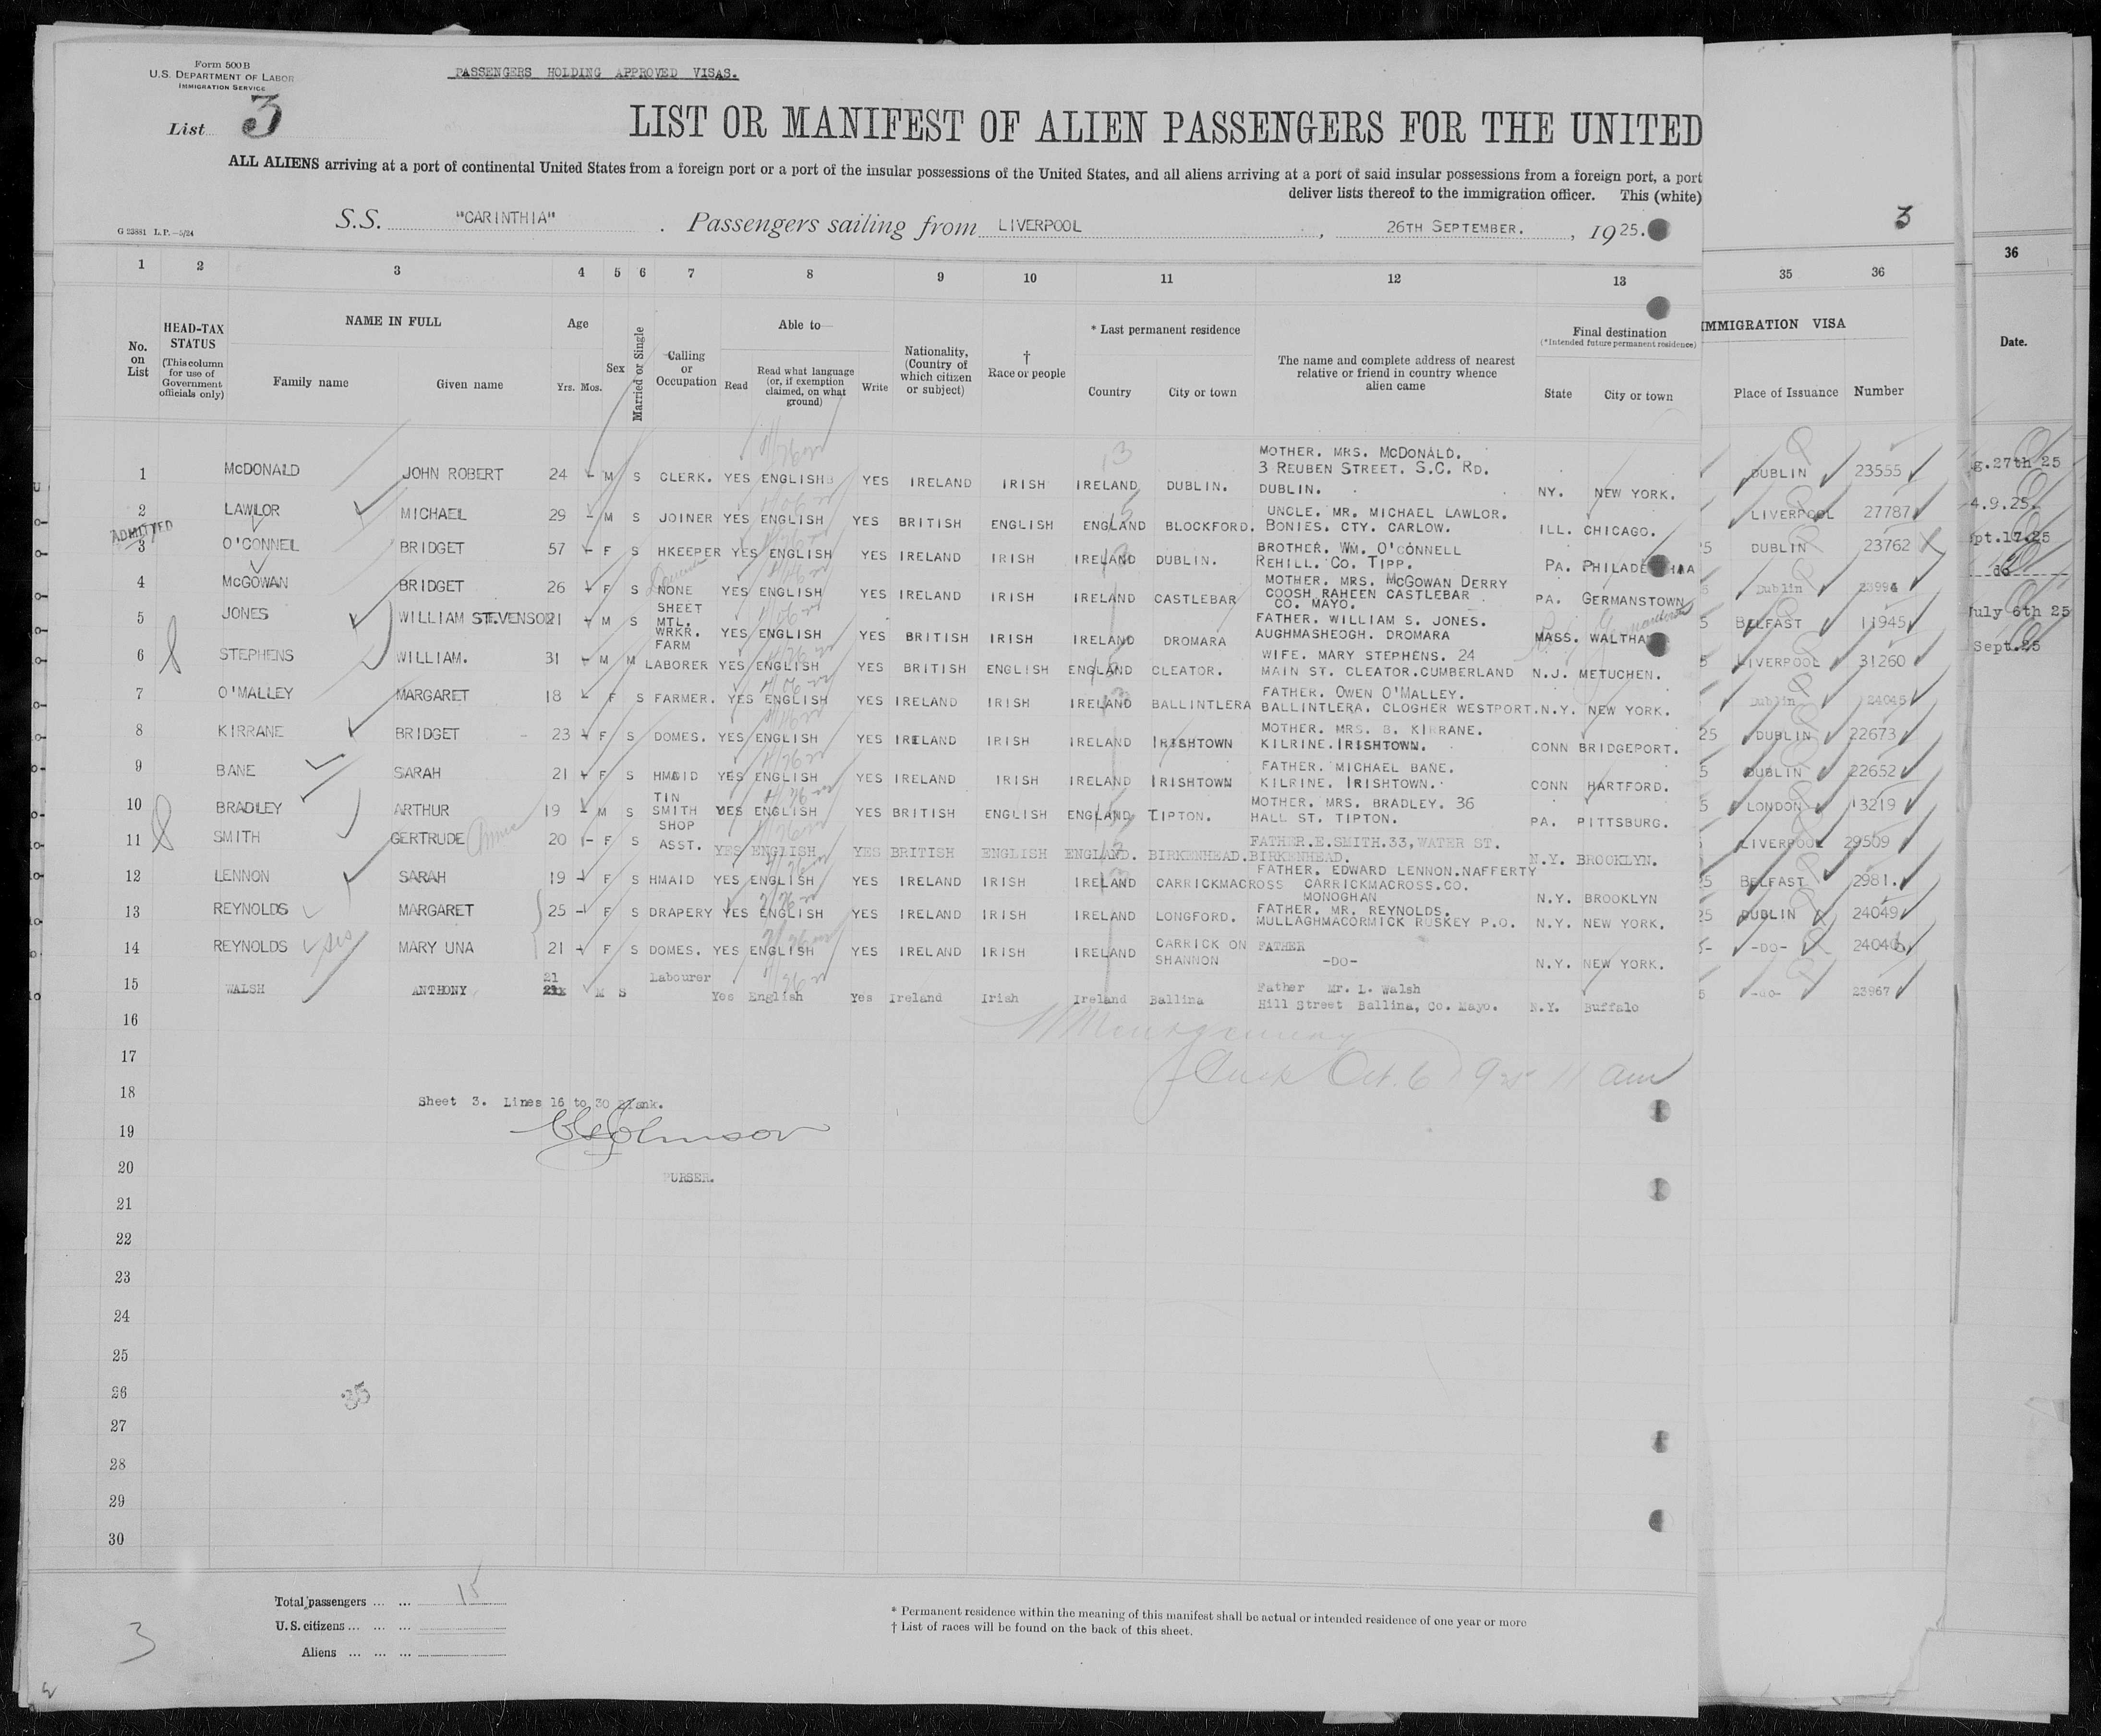 Form 500 B
U.S. DEPARTMENT OF LABOR
IMMIGRATION SERVICE
PASSENGERS HOLDING APPROVED VISAS.
List 3
LIST OR MANIFEST OF ALIEN PASSENGERS FOR THE UNITED
ALL ALIENS arriving at a port of continental United States from a foreign port or a port of the insular possessions of the United States, and all aliens arriving at a port of said insular possessions from a foreign port, a port
deliver lists thereof to the immigration officer. This (white)
S.S. "CARINTHIA" . Passengers sailing from LIVERPOOL , 26TH SEPTEMBER. , 1925.
G 23881 L.P.—5/24
3
1 2 3 4 5 6 7 8 9 10 11 12 13 35 36 36
No. on List
HEAD-TAX STATUS (This column for use of Government officials only)
NAME IN FULL
Family name Given name
Age
Yrs. Mos.
Sex
Married or Single
Calling or Occupation
Able to—
Read Read what language (or, if exemption claimed, on what ground) Write
Nationality, (Country of which citizen or subject)
† Race or people
* Last permanent residence
Country City or town
The name and complete address of nearest relative or friend in country whence alien came
Final destination
(*Intended future permanent residence)
State City or town
IMMIGRATION VISA
Place of Issuance Number
Date.
1 MCDONALD JOHN ROBERT 24 M S CLERK. YES ENGLISH YES IRELAND IRISH IRELAND DUBLIN. MOTHER. MRS. MCDONALD. 3 REUBEN STREET. S.C. RD. DUBLIN. NY. NEW YORK. DUBLIN 23555 g.27th 25
2 LAWLOR MICHAEL 29 M S JOINER YES ENGLISH YES BRITISH ENGLISH ENGLAND BLOCKFORD. UNCLE. MR. MICHAEL LAWLOR. BONIES. CTY. CARLOW. ILL. CHICAGO. LIVERPOOL 27787 4.9.25.
ADMITTED
3 O'CONNELL BRIDGET 57 F S HKEEPER YES ENGLISH YES IRELAND IRISH IRELAND DUBLIN. BROTHER. WM. O'CONNELL REHILL. CO. TIPP. PA. PHILADE HIA 5 DUBLIN 23762 pt.17.25
4 MCGOWAN BRIDGET 26 F S NONE YES ENGLISH YES IRELAND IRISH IRELAND CASTLEBAR MOTHER. MRS. MCGOWAN DERRY COOSH RAHEEN CASTLEBAR CO. MAYO. PA. GERMANSTOWN Dublin 23994 do
5 JONES WILLIAM STEVENSON 21 M S SHEET MTL. WRKR. YES ENGLISH YES BRITISH IRISH IRELAND DROMARA FATHER. WILLIAM S. JONES. AUGHMASHEOGH. DROMARA MASS. WALTHA 5 BELFAST 11945 July 6th 25
6 STEPHENS WILLIAM. 31 M M FARM LABORER YES ENGLISH YES BRITISH ENGLISH ENGLAND CLEATOR. WIFE. MARY STEPHENS. 24 MAIN ST. CLEATOR.CUMBERLAND N.J. METUCHEN. LIVERPOOL 31260 Sept.25
7 O'MALLEY MARGARET 18 F S FARMER. YES ENGLISH YES IRELAND IRISH IRELAND BALLINTLERA FATHER. OWEN O'MALLEY. BALLINTLERA. CLOGHER WESTPORT. N.Y. NEW YORK. Dublin 24045
8 KIRRANE BRIDGET - 23 F S DOMES. YES ENGLISH YES IRELAND IRISH IRELAND IRISHTOWN MOTHER. MRS. B. KIRRANE. KILRINE.IRISHTOWN. CONN BRIDGEPORT. 25 DUBLIN 22673
9 BANE SARAH 21 F S HMAID YES ENGLISH YES IRELAND IRISH IRELAND IRISHTOWN FATHER. MICHAEL BANE. KILRINE. IRISHTOWN. CONN HARTFORD. 5 DUBLIN 22652
10 BRADLEY ARTHUR 19 M S TIN SMITH YES ENGLISH YES BRITISH ENGLISH ENGLAND TIPTON. MOTHER. MRS. BRADLEY. 36 HALL ST. TIPTON. PA. PITTSBURG. 5 LONDON 13219
11 SMITH GERTRUDE Annie 20 F S SHOP ASST. YES ENGLISH YES BRITISH ENGLISH ENGLAND. BIRKENHEAD. FATHER.E.SMITH.33,WATER ST. BIRKENHEAD. N.Y. BROOKLYN. LIVERPOOL 29509
12 LENNON SARAH 19 F S HMAID YES ENGLISH YES IRELAND IRISH IRELAND CARRICKMACROSS FATHER. EDWARD LENNON.NAFFERTY CARRICKMACROSS.CO. MONOGHAN N.Y. BROOKLYN 25 BELFAST 2981.
13 REYNOLDS MARGARET 25 F S DRAPERY YES ENGLISH YES IRELAND IRISH IRELAND LONGFORD. FATHER. MR. REYNOLDS. MULLAGHMACORMICK RUSKEY P.O. N.Y. NEW YORK. 25 DUBLIN 24049
14 REYNOLDS sis MARY UNA 21 F S DOMES. YES ENGLISH YES IRELAND IRISH IRELAND CARRICK ON SHANNON FATHER -DO- N.Y. NEW YORK. -DO-
15 WALSH ANTHONY 21 M S Labourer Yes English Yes Ireland Irish Ireland Ballina Father Mr. L. Walsh Hill Street Ballina, Co. Mayo. N.Y. Buffalo -do- 23967
16
17
Oct. 6 1925 11 am
18
Sheet 3. Lines 16 to 30 Blank.
19
Johnson
20
PURSER.
21
22
23
24
25
26
35
27
28
29
30
Total passengers ... ... 15
U.S. citizens ... ... ...
Aliens ... ... ...
* Permanent residence within the meaning of this manifest shall be actual or intended residence of one year or more
† List of races will be found on the back of this sheet.
3